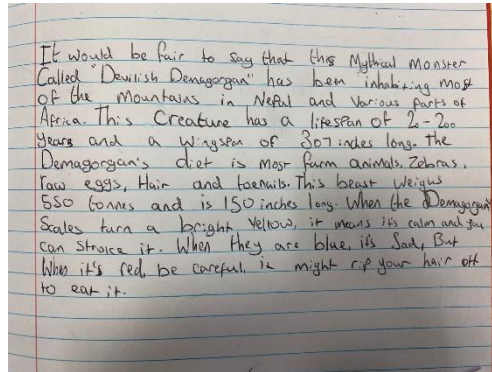 It would be fair to say that this Mythical Monster
Called "Devilish Demagorgan" has been inhabiting most
of the Mountains in Nepal and Various parts of
Africa. This Creature has a lifespan of 2-200
years and a wingspan of 307 inches long. The
Demagorgan's diet is most farm animals. Zebras,
raw eggs, Hair and toenails. This beast weighs
550 tonnes and is 150 inches long. When the Demagorgan
Scales turn a bright Yellow, it means its calm and you
can stroke it. When they are blue, its Sad, But
When it's red, be careful, it might rip your hair off
to eat it.